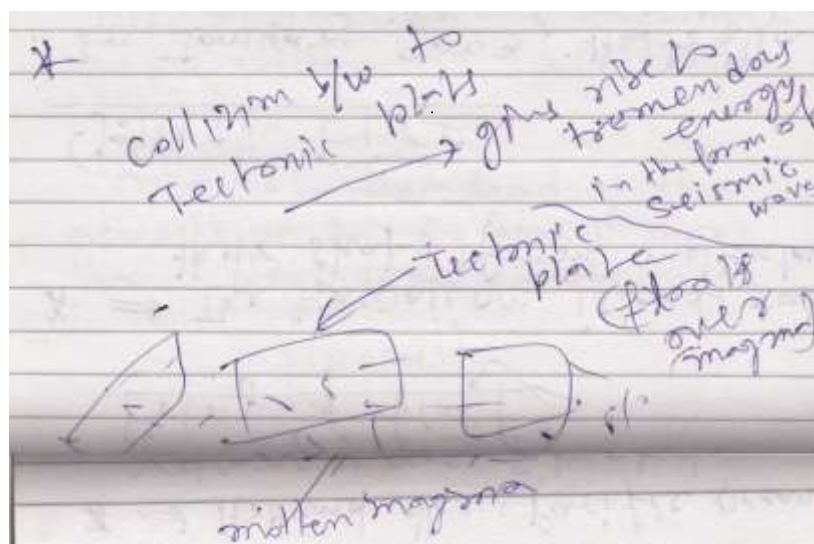 *
Collision b/w to
Tectonic plats
→ gives rise to
tremendous
energy
in the form of
seismic
wave
Tectonic
plate
(floats
over
magma)
molten magma